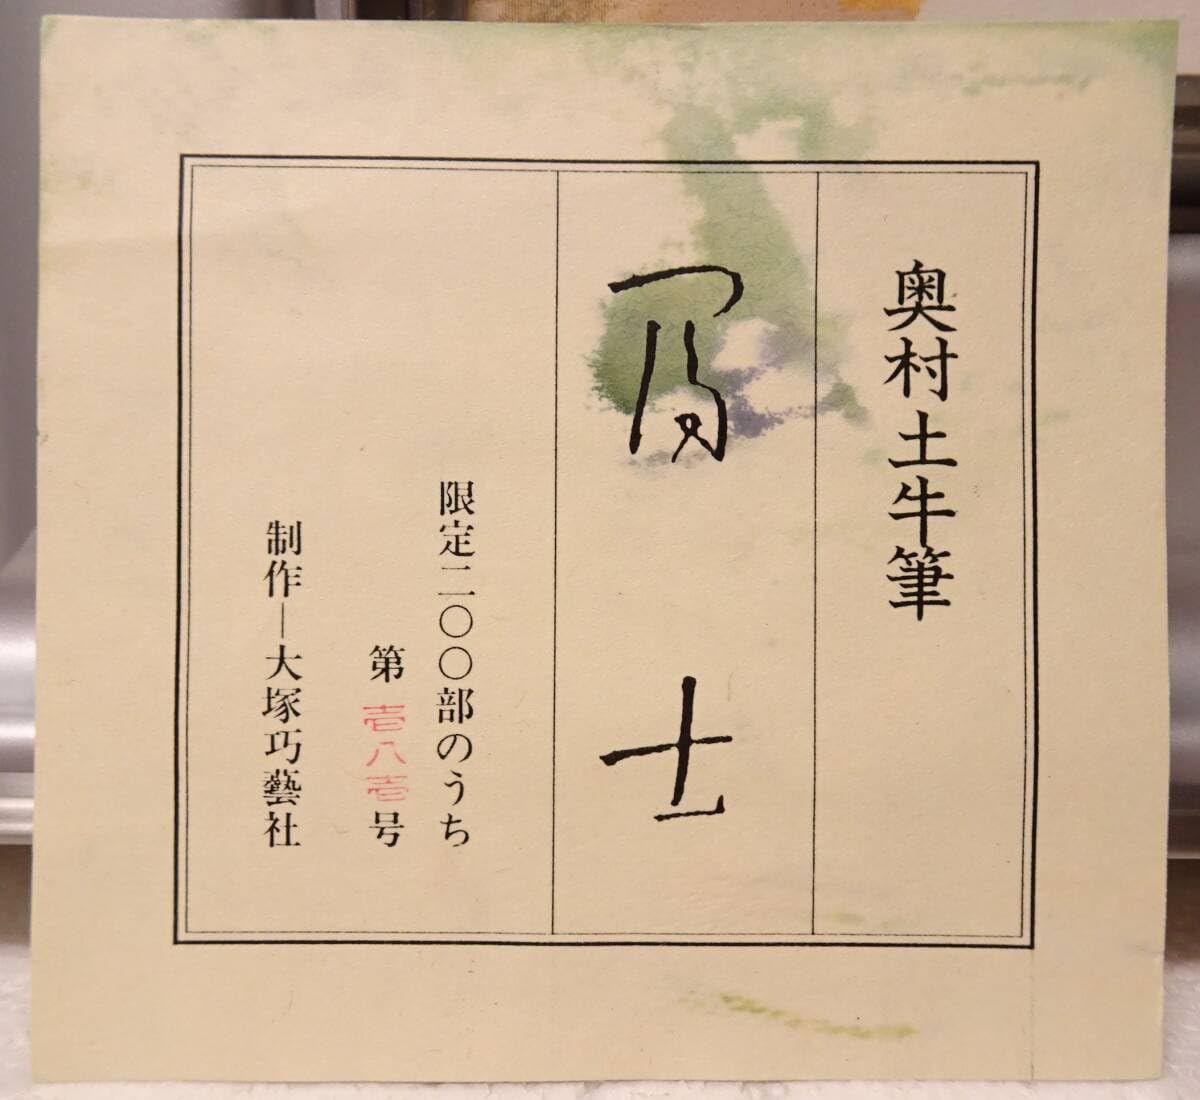 奥村土牛筆
富士
限定二〇〇部のうち
第壱八壱号
制作―大塚巧藝社